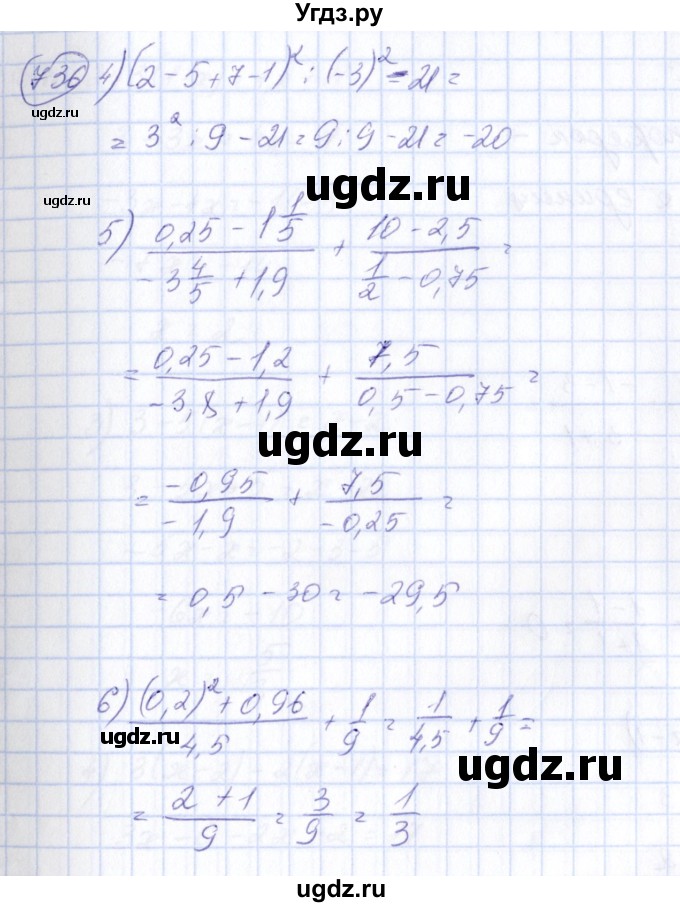 Угдз.ру
736 4) (2 - 5 + 7 - 1)² : (-3)² - 21 =
= 3² : 9 - 21 = 9 : 9 - 21 = -20
ugdz.ru
ugdz.ru
5) (0,25 - 1 1/5)/(-3 4/5 + 1,9) + (10 - 2,5)/(1/2 - 0,75) =
= (0,25 - 1,2)/(-3,8 + 1,9) + 7,5/(0,5 - 0,75) =
ugdz.ru
= -0,95/-1,9 + 7,5/-0,25 =
= 0,5 - 30 = -29,5
ugdz.ru
6) ((0,2)² + 0,96)/4,5 + 1/9 = 1/4,5 + 1/9 =
ugdz.ru
ugdz.ru
= (2 + 1)/9 = 3/9 = 1/3
ugdz.ru